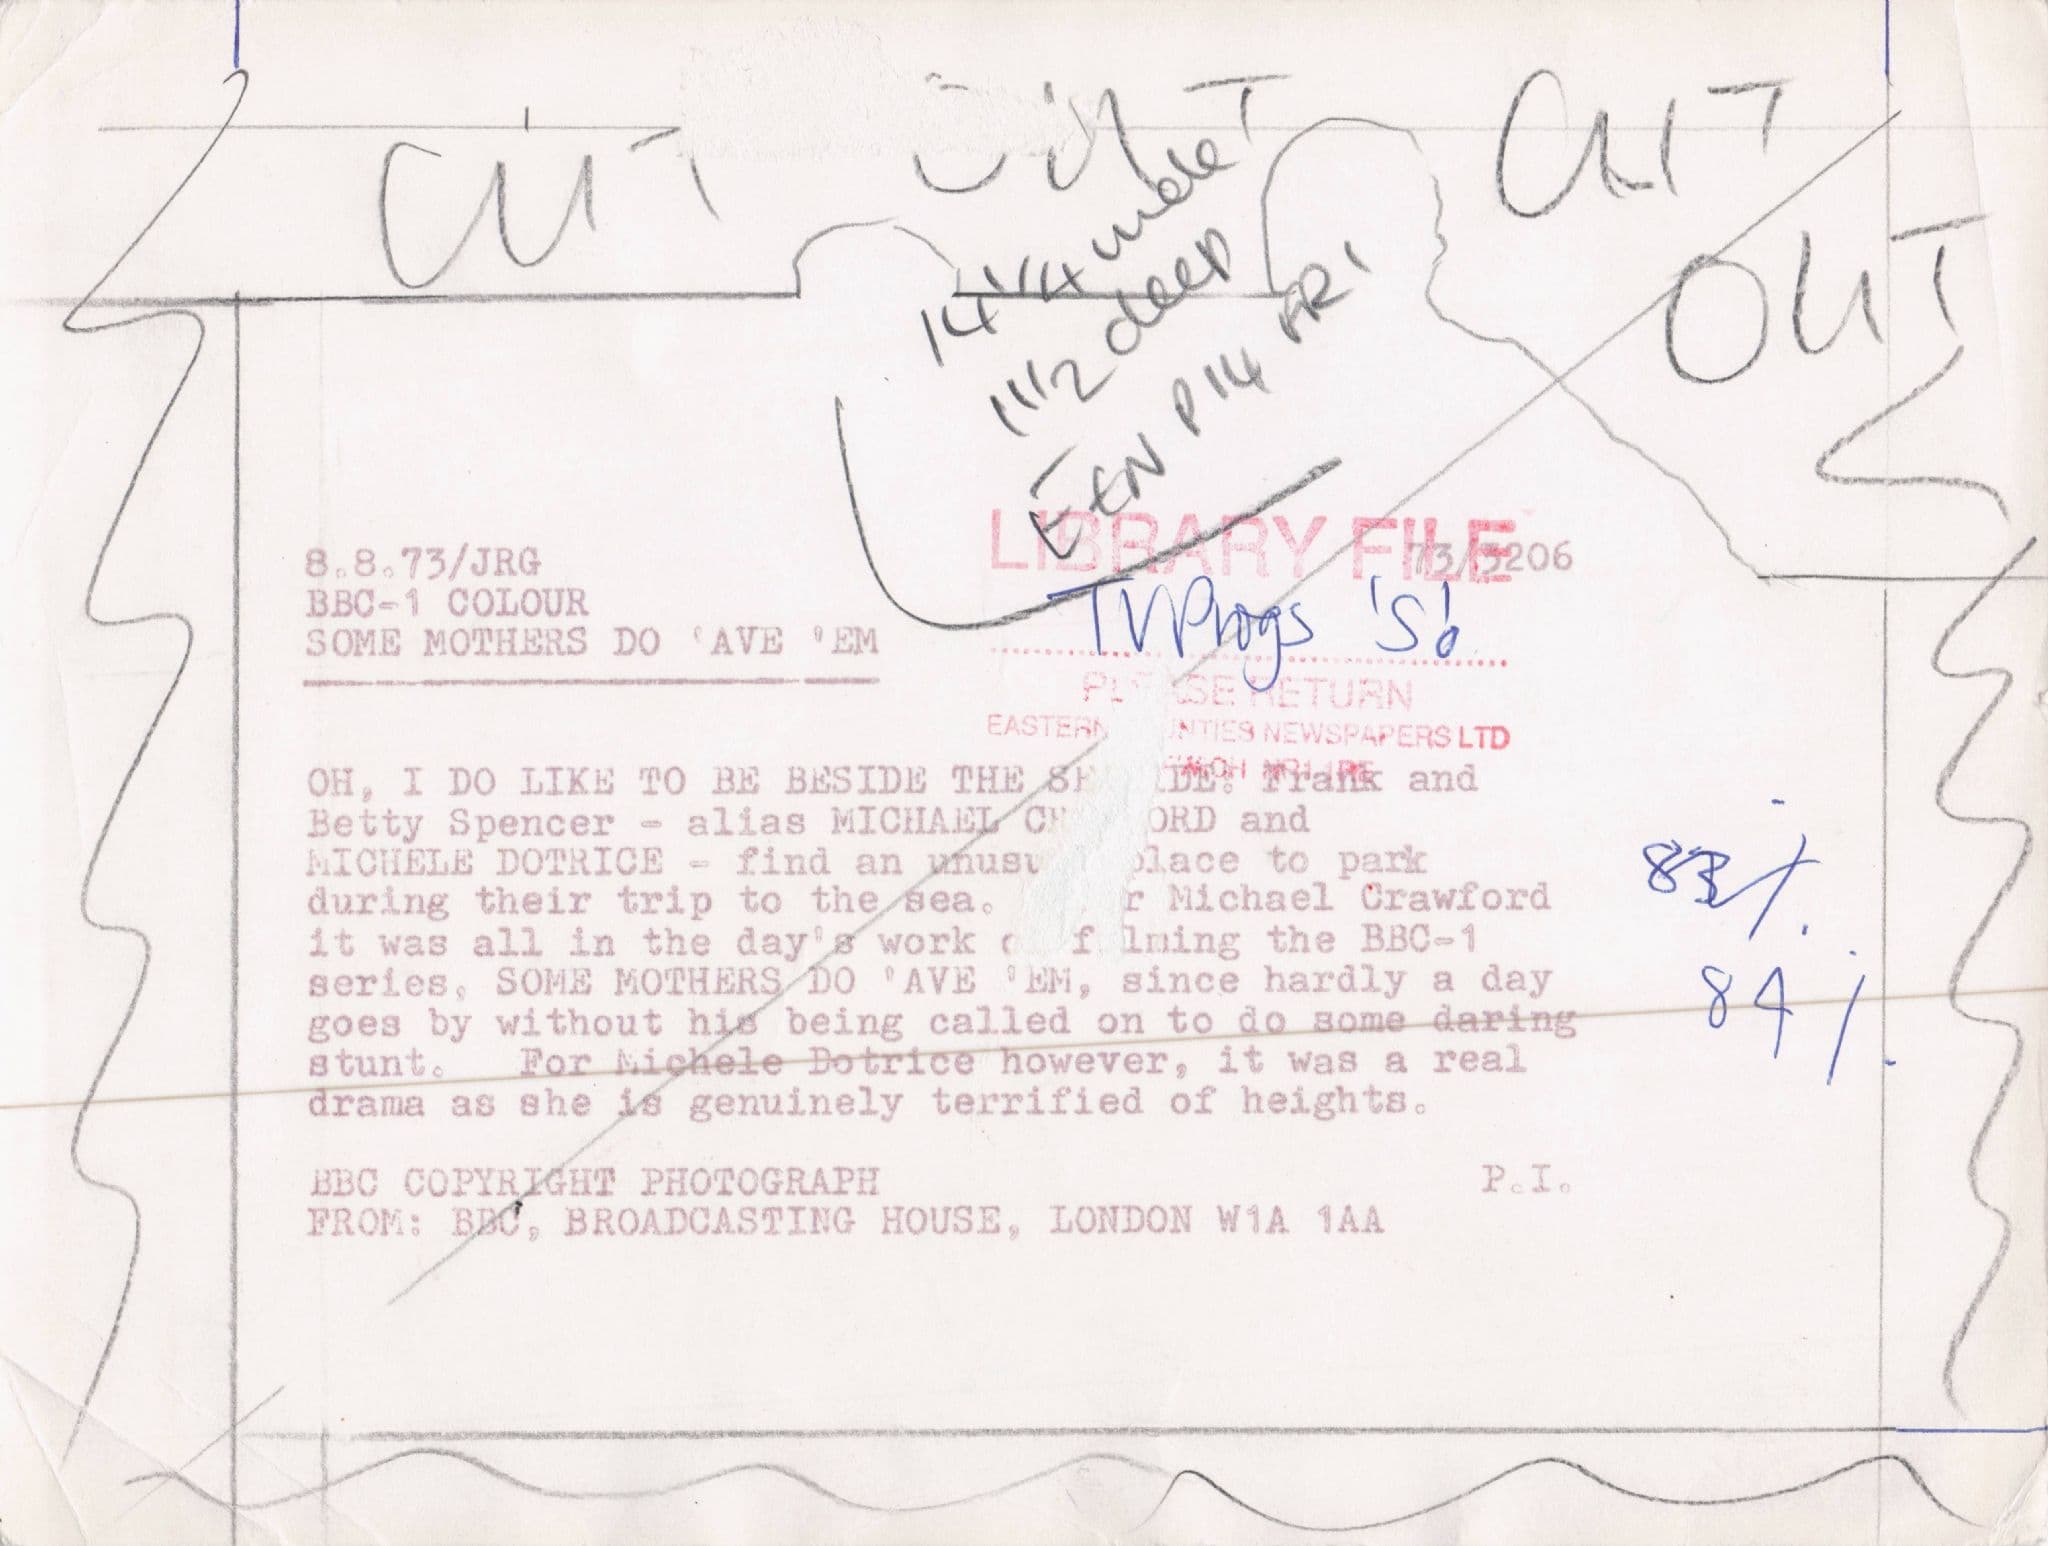 CUT CUT CUT
OUT
14 1/4 wide
11 1/2 deep
EEN P 14 FRI
LIBRARY FILE
8.8.73/JRG 73/3206
BBC-1 COLOUR
TV Progs 'S'
SOME MOTHERS DO 'AVE 'EM
PLEASE RETURN
EASTERN COUNTIES NEWSPAPERS LTD
NR1 1RE
OH, I DO LIKE TO BE BESIDE THE SEASIDE: Frank and
Betty Spencer - alias MICHAEL CRAWFORD and
MICHELE DOTRICE - find an unusual place to park
during their trip to the sea. For Michael Crawford
it was all in the day's work of filming the BBC-1
series, SOME MOTHERS DO 'AVE 'EM, since hardly a day
goes by without his being called on to do some daring
stunt. For Michele Dotrice however, it was a real
drama as she is genuinely terrified of heights.
83%
84%
BBC COPYRIGHT PHOTOGRAPH P.I.
FROM: BBC, BROADCASTING HOUSE, LONDON W1A 1AA